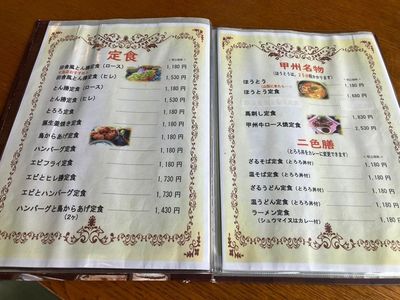 定食
田舎風とん勝定食（ロース） 1,180 円
田舎風とん勝定食（ヒレ） 1,530 円
とん勝定食（ロース） 1,180 円
とん勝定食（ヒレ） 1,530 円
とろろ定食 1,180 円
豚生姜焼き定食 1,180 円
鳥からあげ定食 1,180 円
ハンバーグ定食 1,180 円
エビフライ定食 1,180 円
エビとヒレ勝定食 1,730 円
エビとハンバーグ定食 1,730 円
ハンバーグと鳥からあげ定食 1,430 円
（2ヶ）
甲州名物
（ほうとうは、20分程かかります）
ほうとう 1,180 円
ほうとう定食
馬刺し定食
甲州牛ロース焼定食
二色膳
（とろろ丼をカレーに変更できます）
ざるそば定食（とろろ丼付） 1,180 円
温そば定食（とろろ丼付） 1,180 円
ざるうどん定食（とろろ丼付） 1,180 円
温うどん定食（とろろ丼付） 1,180 円
ラーメン定食 1,180 円
（シュウマイ又はカレー付）